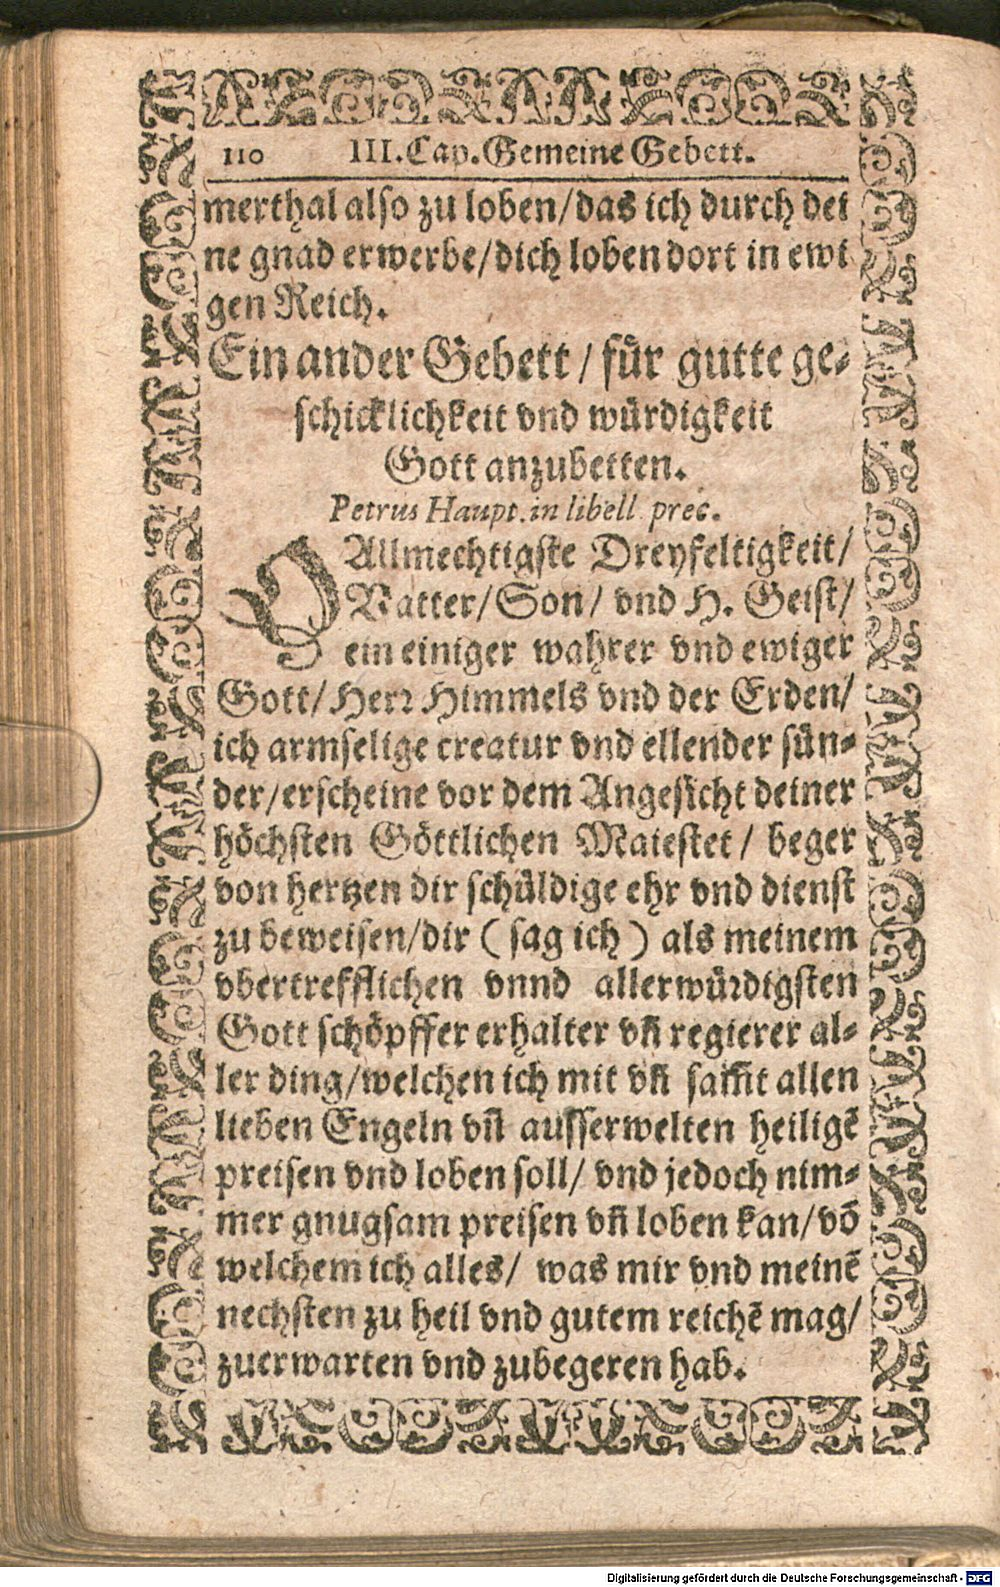 110 III. Cap. Gemeine Gebett.
merthal also zu loben/das ich durch dei
ne gnad erwerbe/dich loben dort in ewi
gen Reich.
Ein ander Gebett / für gutte ge-
schicklichkeit vnd würdigkeit
Gott anzubetten.
Petrus Haupt. in libell prec.
O Allmechtigste Dreyfeltigkeit/
Vatter/Son/ vnd H. Geist/
ein einiger wahrer vnd ewiger
Gott/ Herr Himmels vnd der Erden/
ich armselige creatur vnd ellender sün-
der/erscheine vor dem Angesicht deiner
höchsten Göttlichen Maiestet/ beger
von hertzen dir schüldige ehr vnd dienst
zu beweisen/dir ( sag ich ) als meinem
vbertrefflichen vnnd allerwürdigsten
Gott schöpffer erhalter vn̄ regierer al-
ler ding/welchen ich mit vn̄ sam̄t allen
lieben Engeln vn̄ ausserwelten heiligē
preisen vnd loben soll/ vnd jedoch nim-
mer gnugsam preisen vn̄ loben kan/vō
welchem ich alles/ was mir vnd meinē
nechsten zu heil vnd gutem reichē mag/
zuerwarten vnd zubegeren hab.
Digitalisierung gefördert durch die Deutsche Forschungsgemeinschaft - DFG